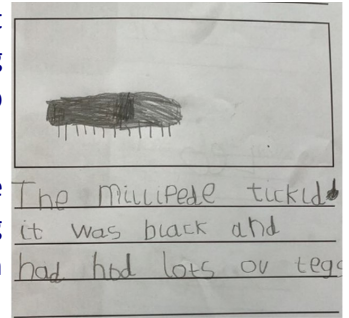 The millipede tickld
it was black and
had hod lots ov legs